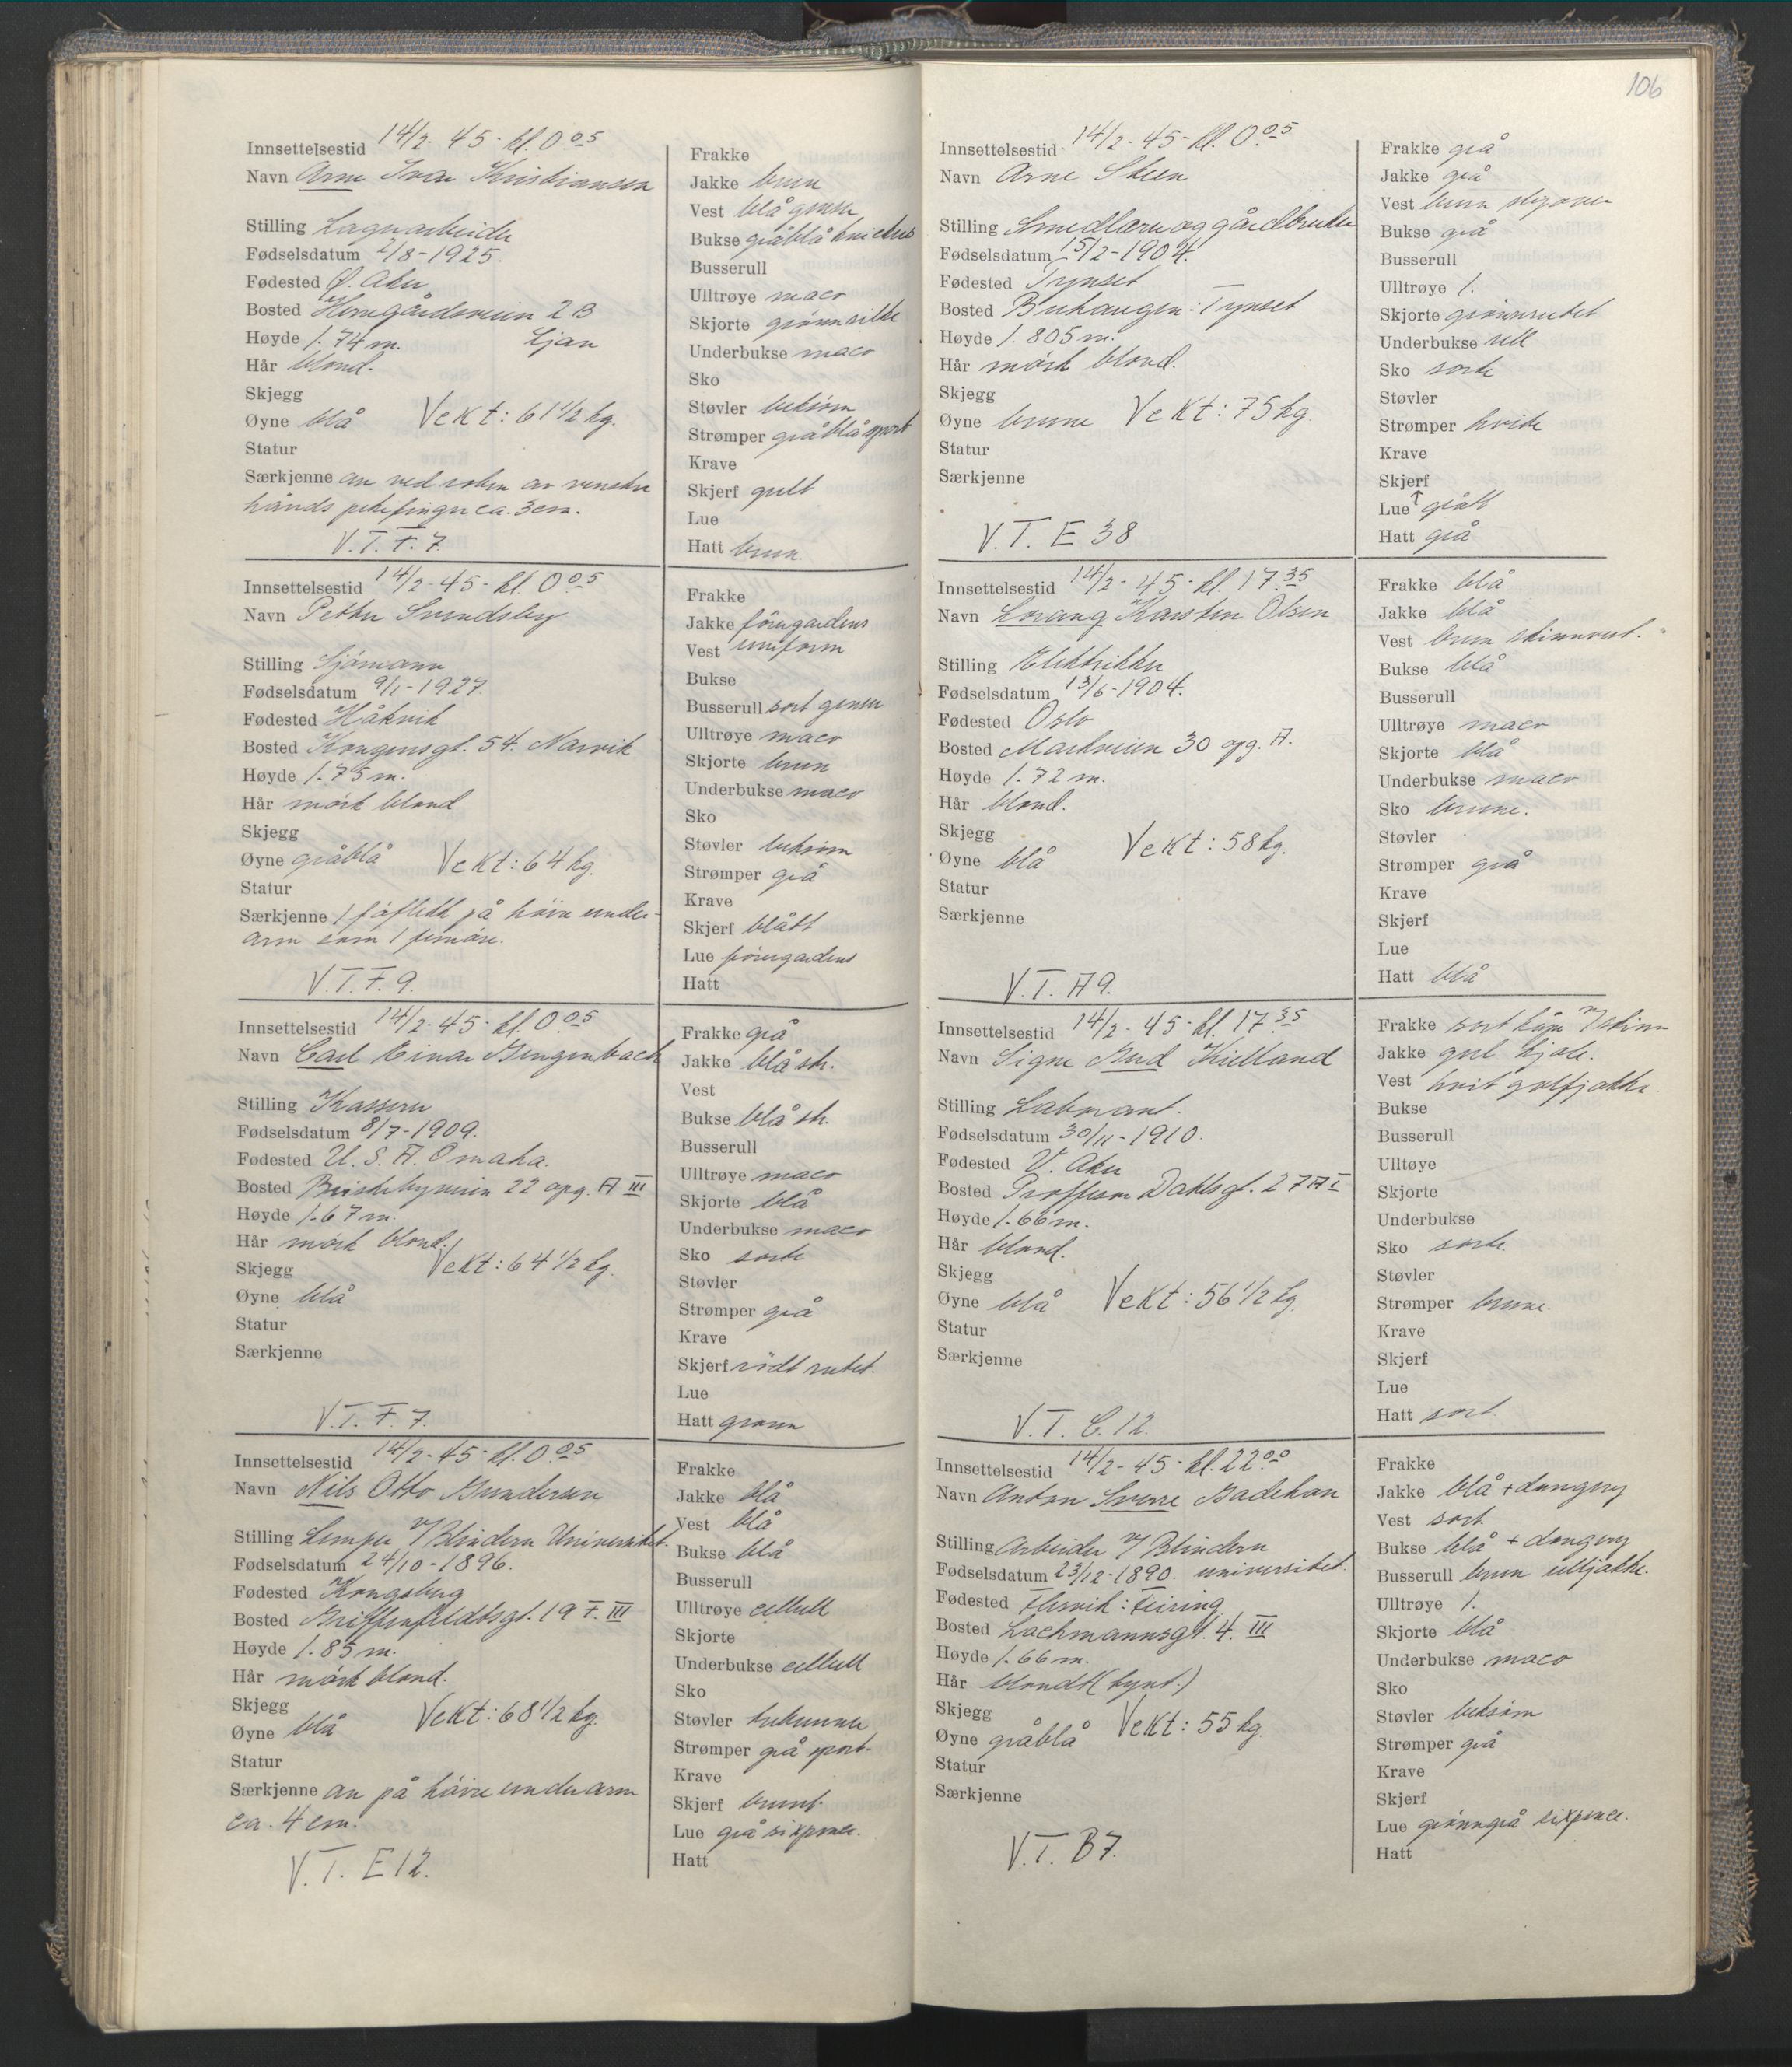 106
Innsettelsestid 14/2- 45- kl. 0.05
Navn Arne Ivar Kristiansen
Stilling Lagerarbeider
Fødselsdatum 2/8-1925.
Fødested Ø. Aker
Bosted Herregårdsveien 2 B
Høyde 1.74 m. Ljan
Hår blond.
Skjegg
Øyne blå Vekt: 61 1/2 kg.
Statur
Særkjenne arr ved roten av venstre
hånds pekefinger ca. 3 cm.
V.T. F. 7.
Frakke
Jakke brun
Vest blå genser
Bukse gråblå knickers
Busserull
Ulltrøye maco
Skjorte grønn silke
Underbukse maco
Sko
Støvler beksøm
Strømper gråblå sport
Krave
Skjerf gult
Lue
Hatt brun
Innsettelsestid 14/2-45- kl. 0.05
Navn Petter Svendsby
Stilling Sjømann
Fødselsdatum 9/1-1927.
Fødested Håkvik
Bosted Kongensgt. 54. Narvik
Høyde 1.75 m.
Hår mørk blond
Skjegg
Øyne gråblå Vekt: 64 kg.
Statur
Særkjenne 1 føflekk på høire under-
arm som 1 femøre.
V.T. F. 9.
Frakke
Jakke førergardens
Vest uniform
Bukse
Busserull sort genser
Ulltrøye maco
Skjorte brun
Underbukse maco
Sko
Støvler beksøm
Strømper grå
Krave
Skjerf blått
Lue førergardens
Hatt
Innsettelsestid 14/2-45- kl. 0.05
Navn Carl Einar Gengenbach
Stilling Kasserer
Fødselsdatum 8/7-1909.
Fødested U. S. A. Omaha.
Bosted Briskebyveien 22 opg. A III
Høyde 1.67 m.
Hår mørk blond.
Skjegg Vekt: 64 1/2 kg.
Øyne blå
Statur
Særkjenne
V.T. F. 7.
Frakke grå
Jakke blå str.
Vest
Bukse blå str.
Busserull
Ulltrøye maco
Skjorte blå
Underbukse maco
Sko sorte
Støvler
Strømper grå
Krave
Skjerf rødt rutet.
Lue
Hatt grønn
Innsettelsestid 14/2-45- kl. 0.05
Navn Nils Otto Gundersen
Stilling Lemper v/Blindern Universitet.
Fødselsdatum 24/10-1896.
Fødested Kongsberg
Bosted Griffenfeldtsgt. 19 F. III
Høyde 1.85 m.
Hår mørk blond.
Skjegg
Øyne blå Vekt: 68 1/2 kg.
Statur
Særkjenne arr på høire underarm
ca. 4 cm.
V.T. E 12.
Frakke
Jakke blå
Vest blå
Bukse blå
Busserull
Ulltrøye cellull
Skjorte
Underbukse cellull
Sko
Støvler
Strømper grå sport-
Krave
Skjerf brunt.
Lue grå sixpence.
Hatt
Innsettelsestid 14/2-45- kl. 0.05
Navn Arne Steen
Stilling Smedlærer og gårdbruker
Fødselsdatum 15/2-1904.
Fødested Tynset
Bosted Brihaugen: Tynset
Høyde 1.805 m.
Hår mørk blond.
Skjegg
Øyne brune Vekt: 75 kg.
Statur
Særkjenne
V.T. E 38
Frakke grå
Jakke grå
Vest brun slipover
Bukse grå
Busserull
Ulltrøye 1.
Skjorte grønnrutet
Underbukse ull
Sko sorte
Støvler
Strømper hvite
Krave
Skjerf
Lue ↑ grått
Hatt grå
Innsettelsestid 14/2-45- kl. 17.35
Navn Lorang Karsten Olsen
Stilling Elektriker
Fødselsdatum 13/6-1904.
Fødested Oslo
Bosted Markveien 30 opg. A.
Høyde 1.72 m.
Hår blond.
Skjegg
Øyne blå Vekt: 58 kg.
Statur
Særkjenne
V.T. A 9.
Frakke blå
Jakke blå
Vest brun skinnvest.
Bukse blå
Busserull
Ulltrøye maco
Skjorte blå
Underbukse maco
Sko brune.
Støvler
Strømper grå
Krave
Skjerf
Lue
Hatt blå
Innsettelsestid 14/2-45- kl. 17.35
Navn Signe Gud Kielland
Stilling Laborant.
Fødselsdatum 30/11-1910.
Fødested V. Aker
Bosted Proffessor Dahlsgt. 27 A I
Høyde 1.66 m.
Hår blond.
Skjegg
Øyne blå Vekt: 56 1/2 kg.
Statur
Særkjenne
V.T. C. 12.
Frakke sort kåpe m/skinn
Jakke gul kjole.
Vest hvit golfjakke
Bukse
Busserull
Ulltøye
Skjorte
Underbukse
Sko sorte.
Støvler
Strømper brune.
Krave
Skjerf
Lue
Hatt sort.
Innsettelsestid 14/2-45- kl. 22.00
Navn Anton Sverre Badehan
Stilling Arbeider v/Blindern
Fødselsdatum 23/12-1890. universitet.
Fødested Elsvik: Feiring
Bosted Lachmannsgt. 4. III
Høyde 1.66 m.
Hår blondt (tynt.)
Skjegg
Øyne gråblå Vekt: 55 kg.
Statur
Særkjenne
V.T. B 7.
Frakke
Jakke blå + dongery
Vest sort
Bukse blå + dongery
Busserull brun ulljakke.
Ulltrøye 1.
Skjorte blå
Underbukse maco
Sko
Støvler beksøm
Strømper grå
Krave
Skjerf
Lue grønngrå sixpence.
Hatt